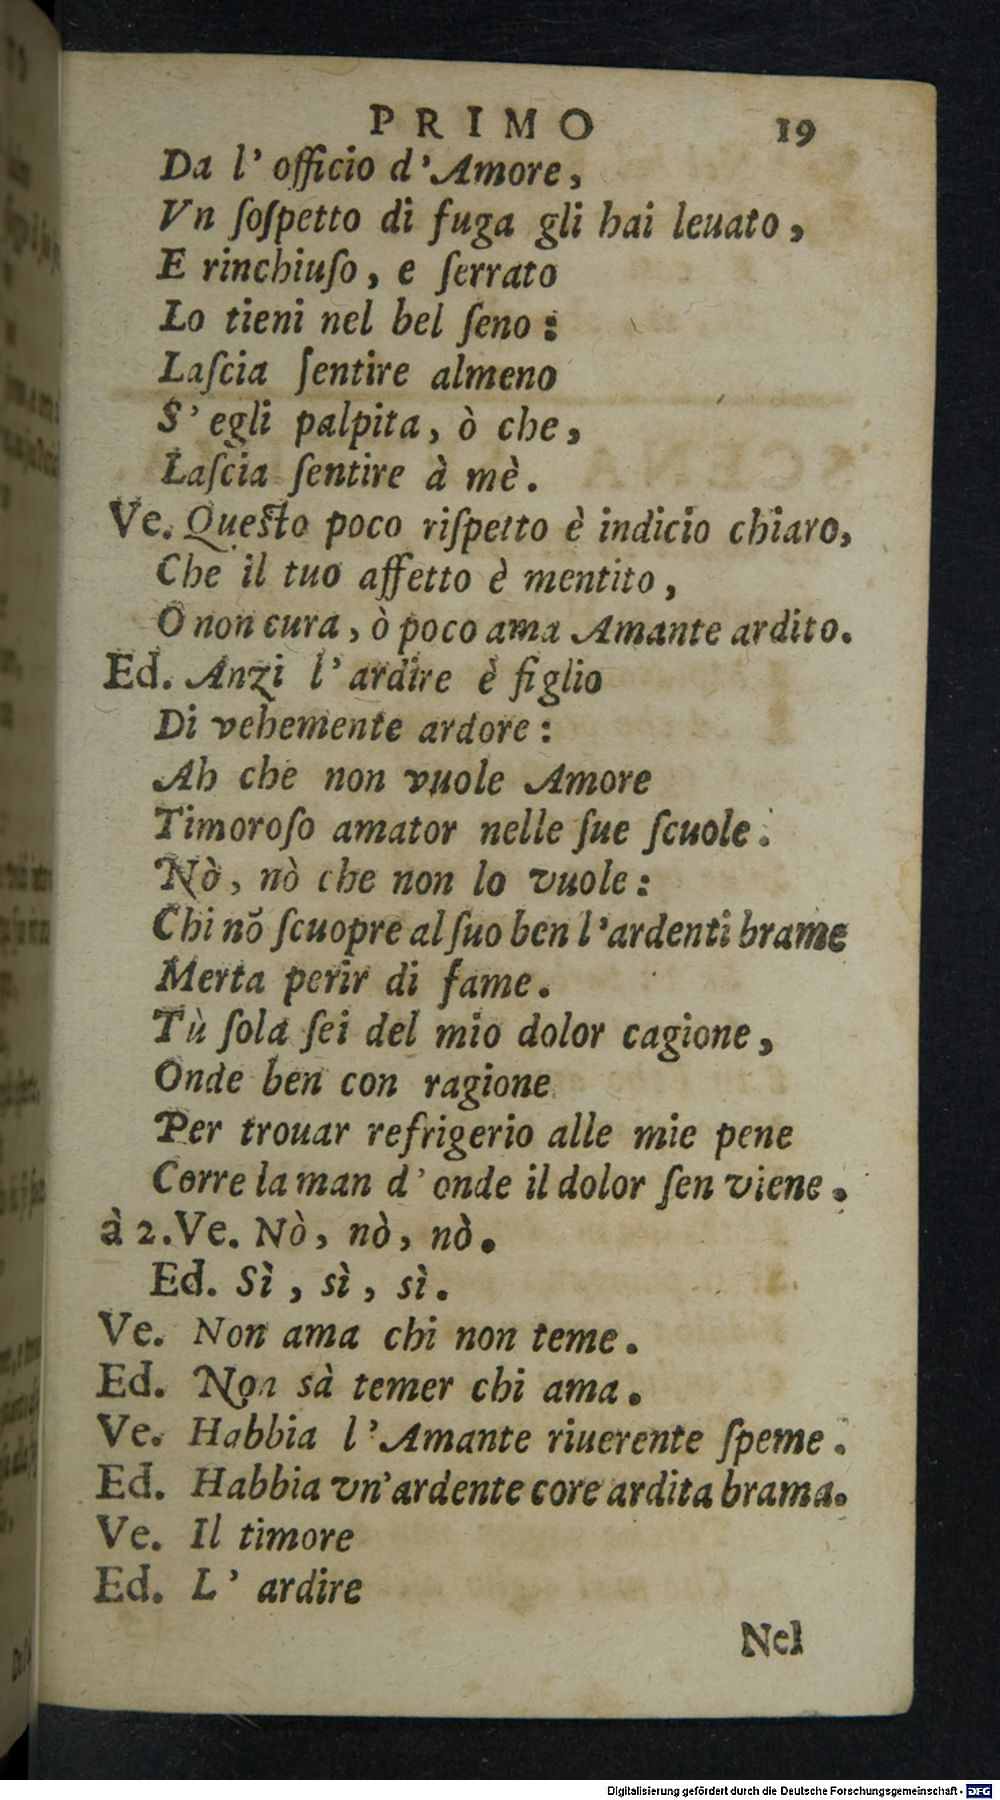 PRIMO 19
Da l' officio d'Amore,
Vn ſoſpetto di fuga gli hai leuato,
E rinchiuſo, e ſerrato
Lo tieni nel bel ſeno:
Laſcia ſentire almeno
S' egli palpita, ò che,
Laſcia ſentire à mè.
Ve. Queſto poco riſpetto è indicio chiaro,
Che il tuo affetto è mentito,
O non cura, ò poco ama Amante ardito.
Ed. Anzi l' ardire è figlio
Di vehemente ardore:
Ah che non vuole Amore
Timoroſo amator nelle ſue ſcuole.
Nò, nò che non lo vuole:
Chi nõ ſcuopre al ſuo ben l'ardenti brame
Merta perir di fame.
Tù ſola ſei del mio dolor cagione,
Onde ben con ragione
Per trouar refrigerio alle mie pene
Corre la man d' onde il dolor ſen viene.
à 2. Ve. Nò, nò, nò.
Ed. Sì, sì, sì.
Ve. Non ama chi non teme.
Ed. Non sà temer chi ama.
Ve. Habbia l'Amante riuerente ſpeme.
Ed. Habbia vn'ardente core ardita brama.
Ve. Il timore
Ed. L' ardire
Nel
Digitalisierung gefördert durch die Deutsche Forschungsgemeinschaft - DFG